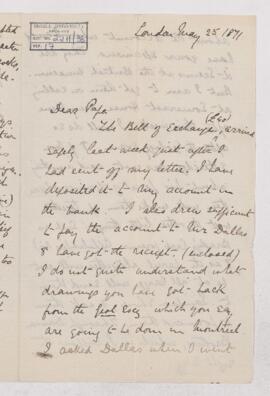 London May 25 1871
McGILL UNIVERSITY
ARCHIVES
ACC. NO. 2211/36
REF. 17
Dear Papa
The Bill of Exchange, arrived
safely last week just after I
had sent off my letter. I have
deposited it to my account in
the bank. I also drew sufficient
to pay the account to Mr Dallas
& have got the receipt. (enclosed)
I do not quite understand what
drawings you have got back
from the Geol Socy which you say
are going to be done in Montreal
I asked Dallas when I went